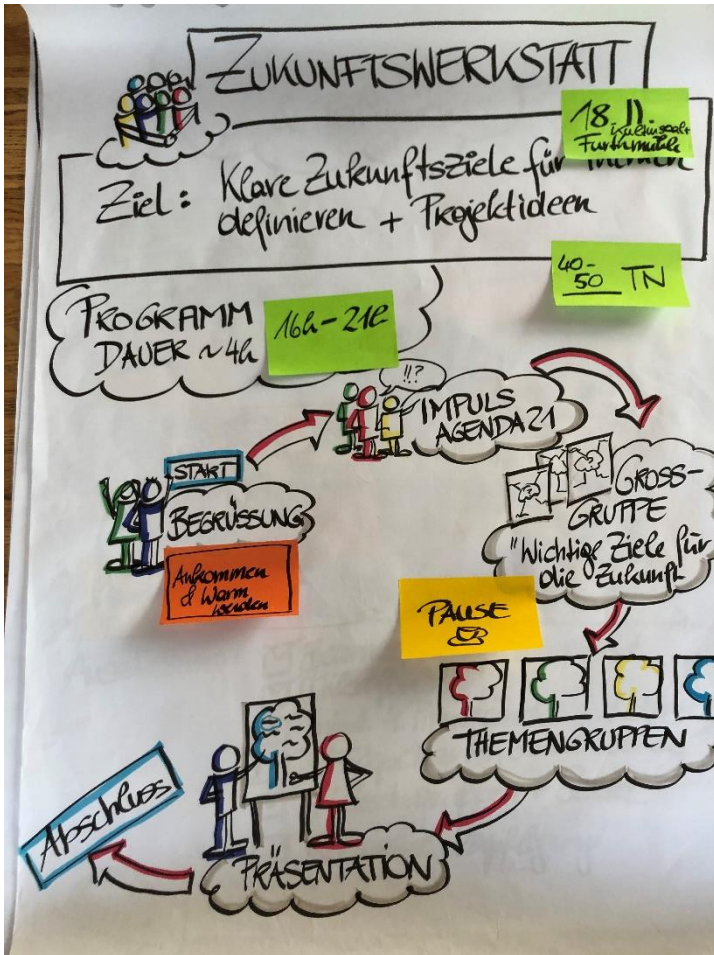 ZUKUNFTSWERKSTATT
18.11.
Furthmühle
Ziel: Klare Zukunftsziele für
definieren + Projektideen
40-
50 TN
PROGRAMM
DAUER ~4h
16h-21h
!!?
IMPULS
AGENDA 21
START
BEGRÜSSUNG
Ankommen
& Warm
werden
GROSS-
GRUPPE
"Wichtige Ziele für
die Zukunft
PAUSE
THEMENGRUPPEN
PRÄSENTATION
Abschluss